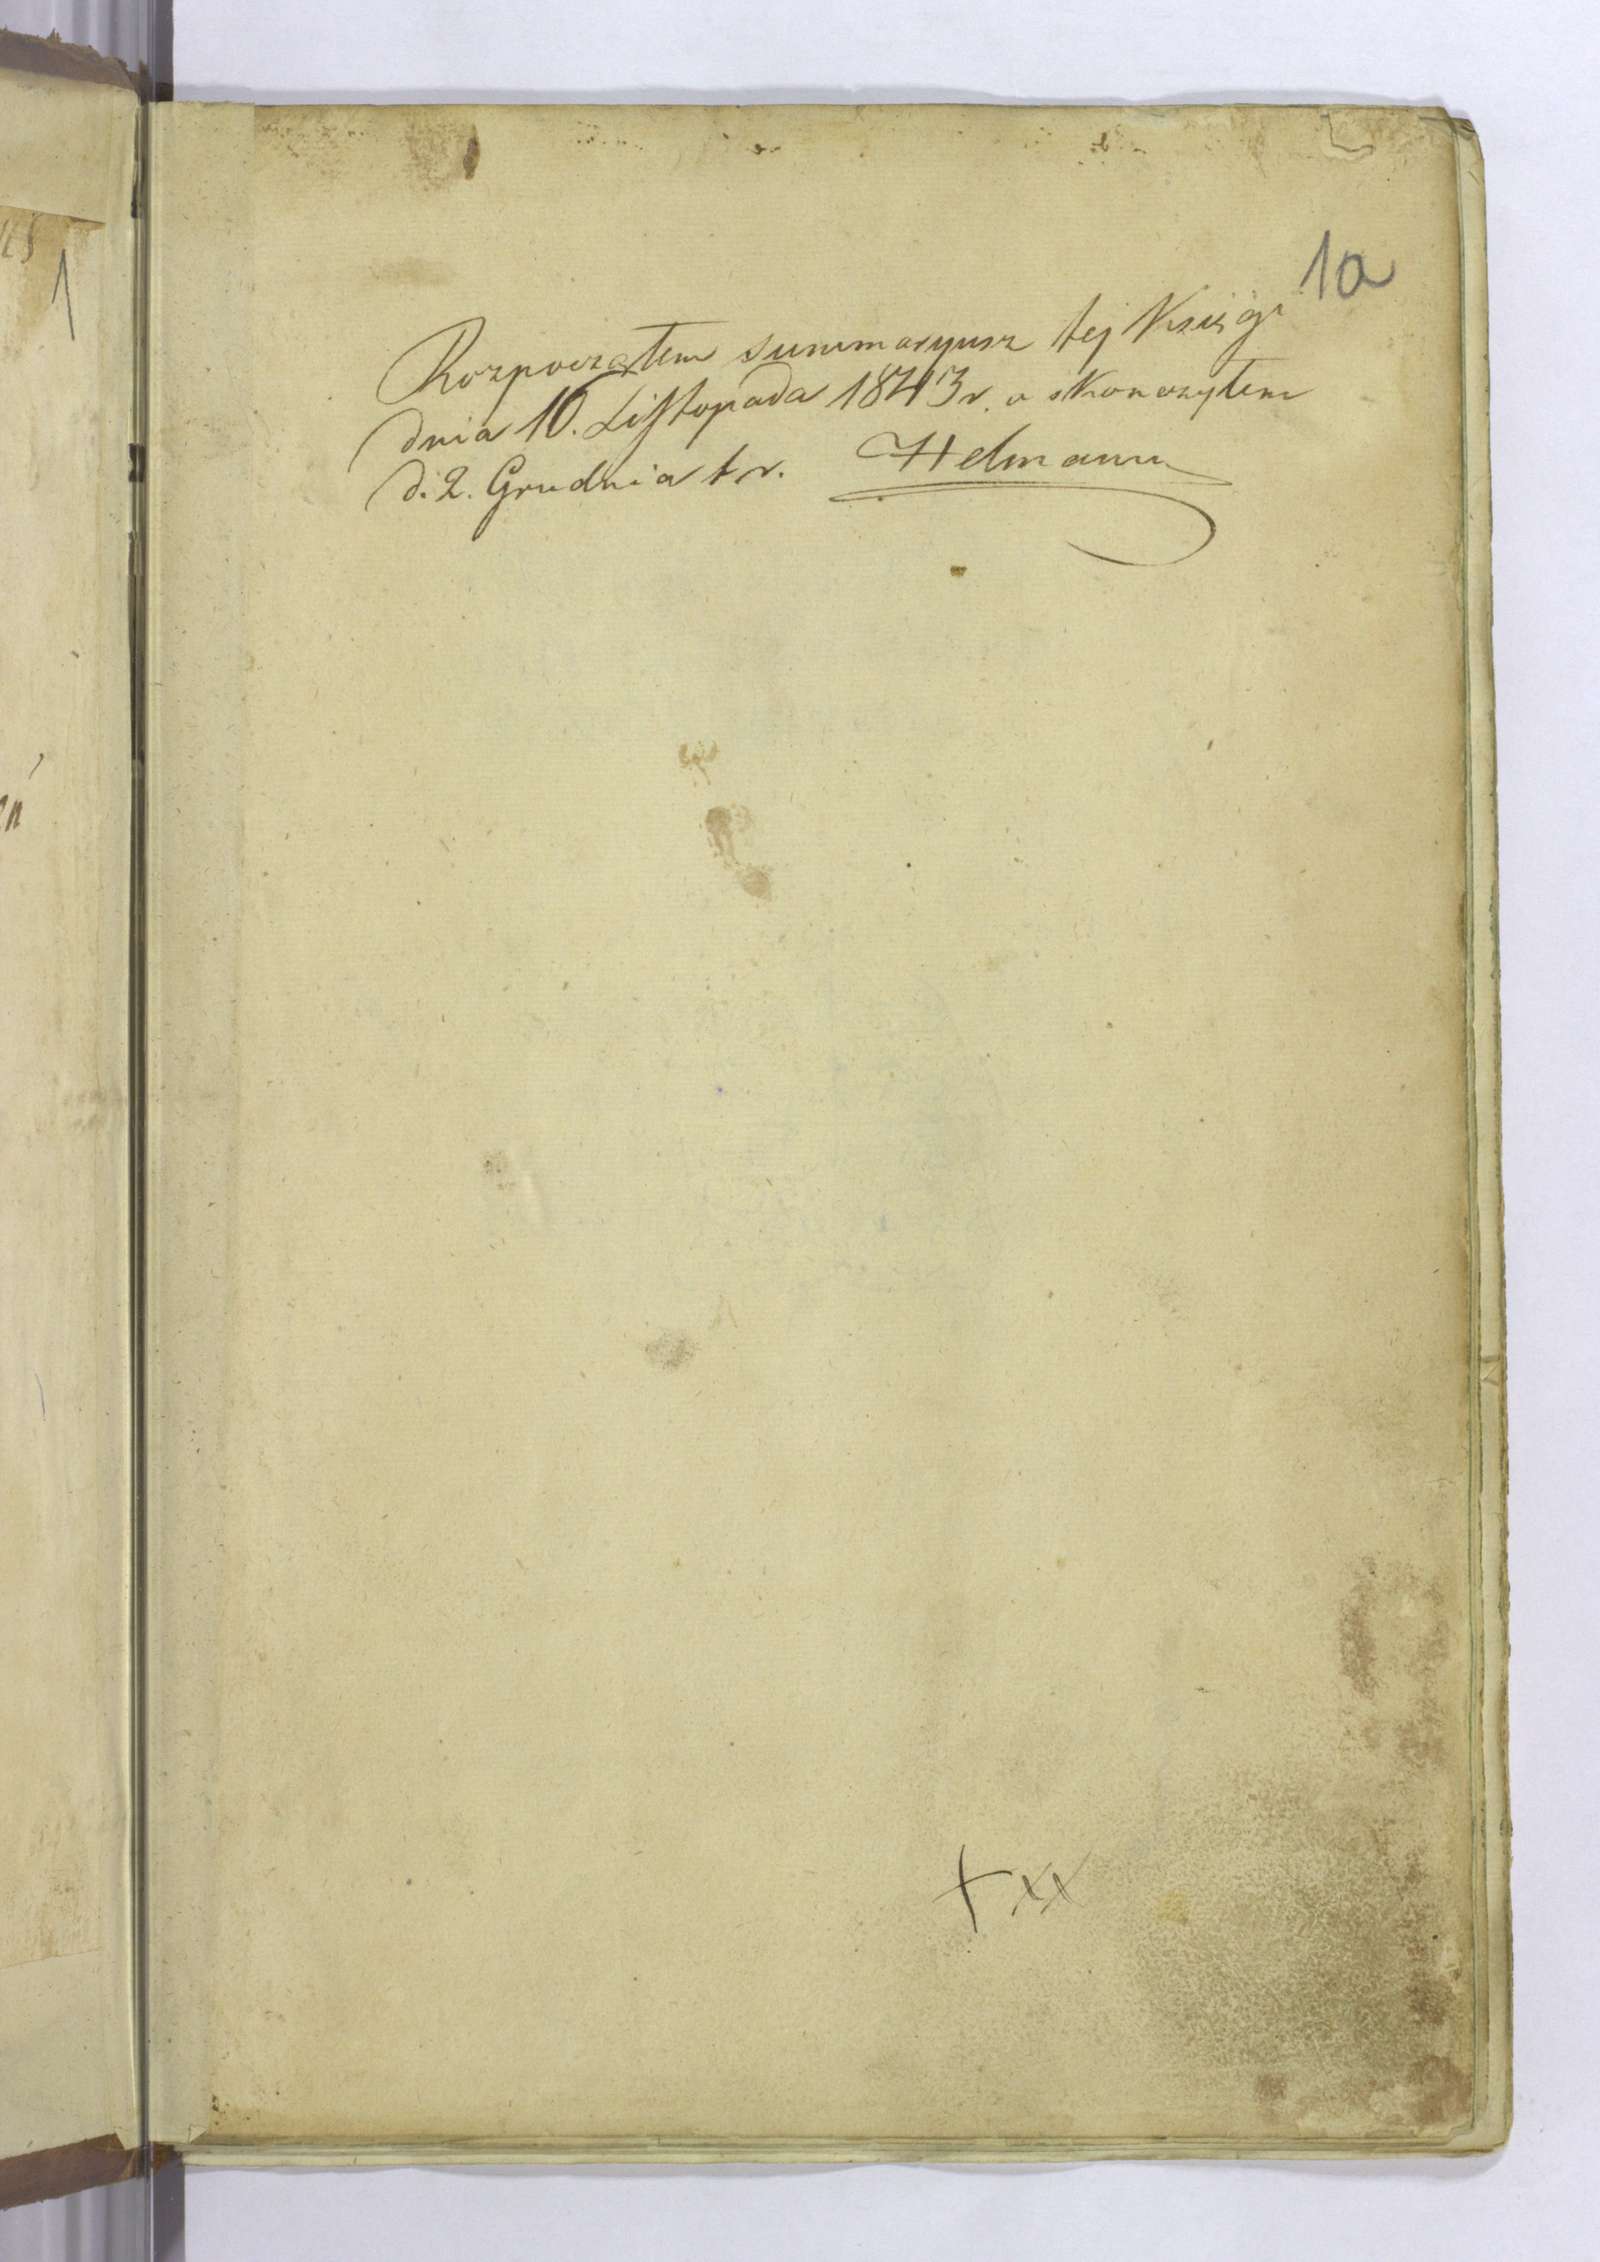 1a
Rozpocząłem summaryusz tej Księgi
dnia 10. Listopada 1843 r. a skonczyłem
d. 2. Grudnia t. r. Helmann
+ xx
1